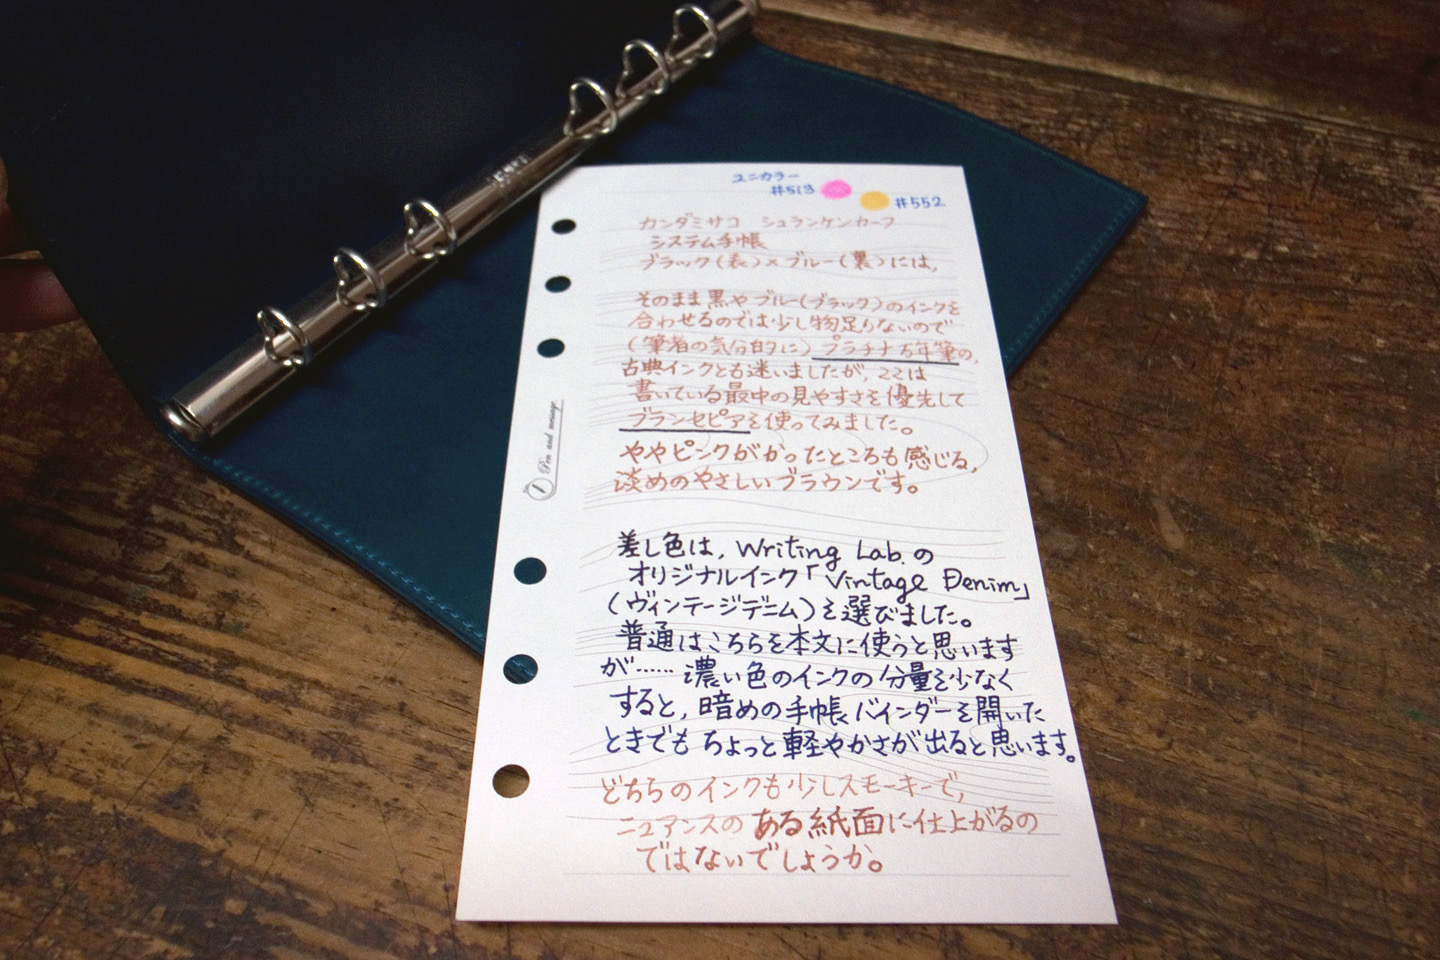 ユニカラー
#513
#552
カンダミサコ シュランケンカーフ
システム手帳
ブラック(表)×ブルー(裏)には、
そのまま黒やブルー(ブラック)のインクを
合わせるのでは少し物足りないので
(筆者の気分的に)プラチナ万年筆の、
古典インクとも迷いましたが、ここは
書いている最中の見やすさを優先して
ブランセピアを使ってみました。
ややピンクがかったところも感じる、
淡めのやさしいブラウンです。
Pen and message.
差し色は、Writing Lab.の
オリジナルインク「Vintage Denim」
(ヴィンテージデニム)を選びました。
普通はこちらを本文に使うと思います
が……濃い色のインクの分量を少なく
すると、暗めの手帳バインダーを開いた
ときでもちょっと軽やかさが出ると思います。
どちらのインクも少しスモーキーで、
ニュアンスのある紙面に仕上がるの
ではないでしょうか。